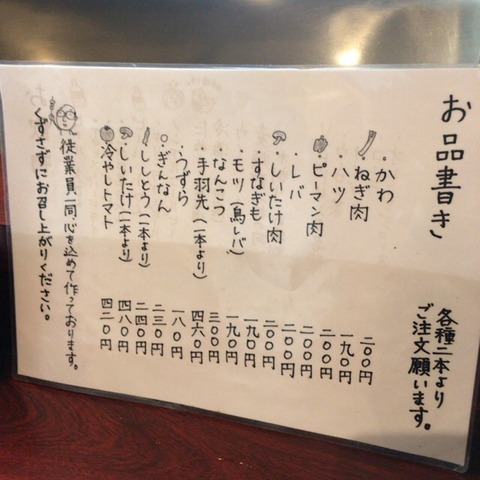 お品書き
各種二本より
ご注文願います。
・かわ 二〇〇円
・ねぎ肉 一九〇円
・ハツ 二〇〇円
・ピーマン肉 二〇〇円
・レバ 二〇〇円
・しいたけ肉 二〇〇円
・すなぎも 一九〇円
・モツ(鳥レバ) 一九〇円
・なんこつ 三〇〇円
・手羽先(一本より) 四六〇円
・うずら 一八〇円
・ぎんなん 二三〇円
・ししとう(一本より) 二四〇円
・しいたけ(一本より) 四八〇円
・冷やしトマト 四二〇円
従業員一同、心を込めて作っております。
くずさずにお召し上がりください。